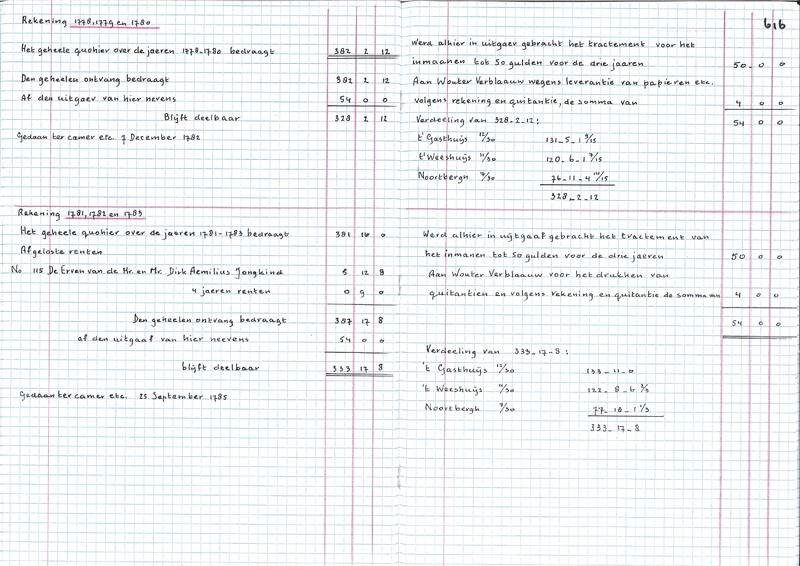 Rekening 1778, 1779 en 1780
Het geheele quohier over de jaeren 1778-1780 bedraagt 382 2 12
Den geheelen ontvang bedraagt 382 2 12
Af den uitgaev van hier nevens 54 0 0
Blijft deelbaar 328 2 12
Gedaan ter camer etc. 7 December 1782
Rekening 1781, 1782 en 1783
Het geheele quohier over de jaeren 1781-1783 bedraagt 381 16 0
Afgeloste renten
No 115 De Erven van de Hr. en Mr. Dirk Aemilius Jongkind 5 12 8
4 jaeren renten 0 9 0
Den geheelen ontvang bedraagt 387 17 8
af den uitgaaf van hier neevens 54 0 0
blijft deelbaar 333 17 8
Gedaan ter camer etc. 25 September 1785
616
Werd alhier in uitgaev gebracht het tractement voor het
inmaanen tot 50 gulden voor de drie jaaren 50 - 0 0
Aan Wouter Verblaauw wegens leverantie van papieren etc.
volgens rekening en quitantie, de somma van 4 0 0
Verdeeling van 328-2-12: 54 0 0
t' Gasthuijs 12/30 131-5-1 9/15
t' Weeshuijs 11/30 120-6-1 7/15
Noortbergh 7/30 76-11-4 14/15
328-2-12
Werd alhier in uijtgaaf gebracht het tractement van
het inmanen tot 50 gulden voor de drie jaeren 50 0 0
Aan Wouter Verblaauw voor het drukken van
quitantien en volgens rekening en quitantie de somma van 4 0 0
54 0 0
Verdeeling van 333-17-8:
't Gasthuijs 12/30 133-11-0
't Weeshuijs 11/30 122-8-6 2/3
Noortbergh 7/30 77-18-1 1/3
333-17-8